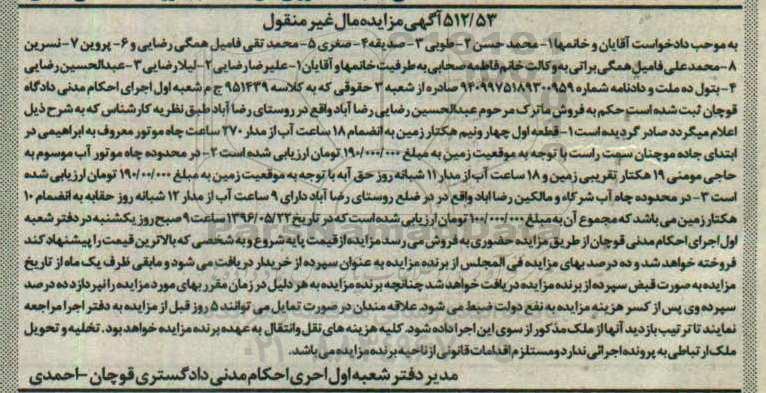 ۵۱۲/۵۳ آگهی مزایده مال غیر منقول
به موجب دادخواست آقایان و خانمها ۱- محمد حسن ۲- طوبی ۳- صدیقه ۴- صغری ۵- محمد تقی فامیل همگی رضایی و ۶- پروین ۷- نسرین
۸- محمدعلی فامیل همگی براتی به وکالت خانم فاطمه صحابی به طرفیت خانمها و آقایان ۱- علیرضا رضایی ۲- لیلا رضایی ۳- عبدالحسین رضایی
۴- بتول ده ملت و دادنامه شماره ۹۴۰۹۹۷۵۱۸۹۳۰۰۹۵۹ صادره از شعبه ۳ حقوقی که به کلاسه ۹۵۱۴۳۹ ج م شعبه اول اجرای احکام مدنی دادگاه
قوچان ثبت شده است حکم به فروش ماترک مرحوم عبدالحسین رضایی رضا آباد واقع در روستای رضا آباد طبق نظریه کارشناس که به شرح ذیل
اعلام میگردد صادر گردیده است ۱- قطعه اول چهار و نیم هکتار زمین به انضمام ۱۸ ساعت آب از مدار ۲۷۰ ساعت چاه موتور معروف به ابراهیمی در
ابتدای جاده موچنان سمت راست با توجه به موقعیت زمین به مبلغ ۱۹۰/۰۰۰/۰۰۰ تومان ارزیابی شده است ۲- در محدوده چاه موتور آب موسوم به
حاجی مومنی ۱۹ هکتار تقریبی زمین و ۱۸ ساعت آب از مدار ۱۱ شبانه روز حق آبه با توجه به موقعیت زمین به مبلغ ۱۹۰/۰۰/۰۰۰ تومان ارزیابی شده
است ۳- در محدوده چاه آب شرکاء و مالکین رضا اباد واقع در در ضلع روستای رضا آباد دارای ۹ ساعت آب از مدار ۱۲ شبانه روز حقابه به انضمام ۱۰
هکتار زمین می باشد که مجموع آن به مبلغ ۱۰۰/۰۰۰/۰۰۰ تومان ارزیابی شده است که در تاریخ ۱۳۹۶/۰۵/۲۲ ساعت ۹ صبح روز یکشنبه در دفتر شعبه
اول اجرای احکام مدنی قوچان از طریق مزایده حضوری به فروش می رسد مزایده از قیمت پایه شروع و به شخصی که بالاترین قیمت را پیشنهاد کند
فروخته خواهد شد و ده درصد بهای مزایده فی المجلس از برنده مزایده به عنوان سپرده از خریدار دریافت می شود و مابقی ظرف یک ماه از تاریخ
مزایده به صورت قبض سپرده از برنده مزایده دریافت خواهد شد چنانچه برنده مزایده به هر دلیل در زمان مقرر بهای مورد مزایده را نپردازد ده درصد
سپرده وی پس از کسر هزینه مزایده به نفع دولت ضبط می شود. علاقه مندان در صورت تمایل می توانند ۵ روز قبل از مزایده به دفتر اجرا مراجعه
نمایند تا ترتیب بازدید آنها از ملک مذکور از سوی این اجرا داده شود. کلیه هزینه های نقل وانتقال به عهده برنده مزایده خواهد بود. تخلیه و تحویل
ملک ارتباطی به پرونده اجرائی ندارد و مستلزم اقدامات قانونی از ناحیه برنده مزایده می باشد.
مدیر دفتر شعبه اول اجری احکام مدنی دادگستری قوچان - احمدی